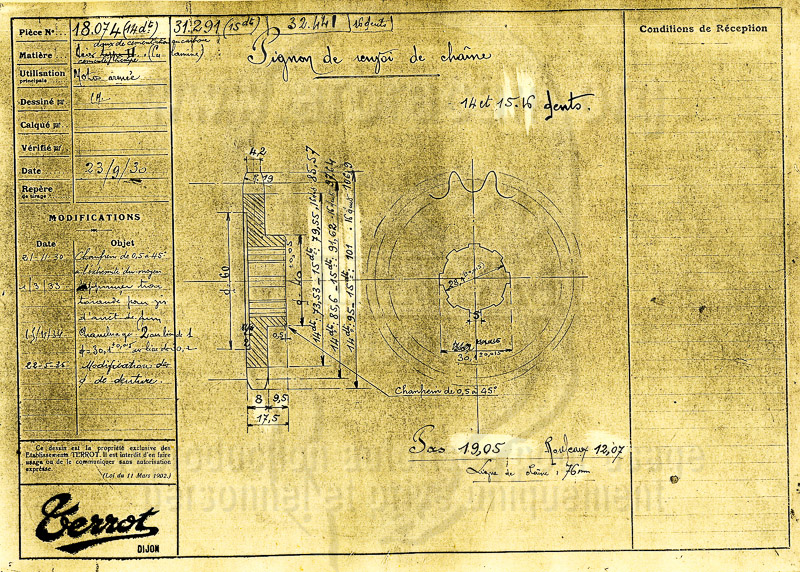 Pièce N°... 18.074 (14dts) 31.291 (15dts) 32.441 (16 dents)
Matière
Utilisation
principale
Moto armée
Dessiné par
Calqué par
Vérifié par
Date 23/9/30
Repère
de tirage
MODIFICATIONS
Date Objet
Chanfrein de 0,5 à 45°
à l'extrémité du moyeu
1/3/33
d'arrêt de
22-5-36 Modification de
de denture.
Ce dessin est la propriété exclusive des
Etablissements TERROT. Il est interdit d'en faire
usage ou de le communiquer sans autorisation
expresse.
(Loi du 11 Mars 1902.)
Terrot
DIJON
Pignon de renvoi de chaîne
14 et 15-16 dents.
4,2
φ 60
14dts: 73,53 - 15dts: 79,55. 16dts 85,57
14dts: 85,6 - 15dts: 91,62
14dts: 95 - 15dts: 101
0,5
8 9,5
17,5
5
30,1
Chanfrein de 0,5 à 45°
Pas 19,05 Rouleaux 12,07
Ligne de chaîne : 76mm
Conditions de Réception